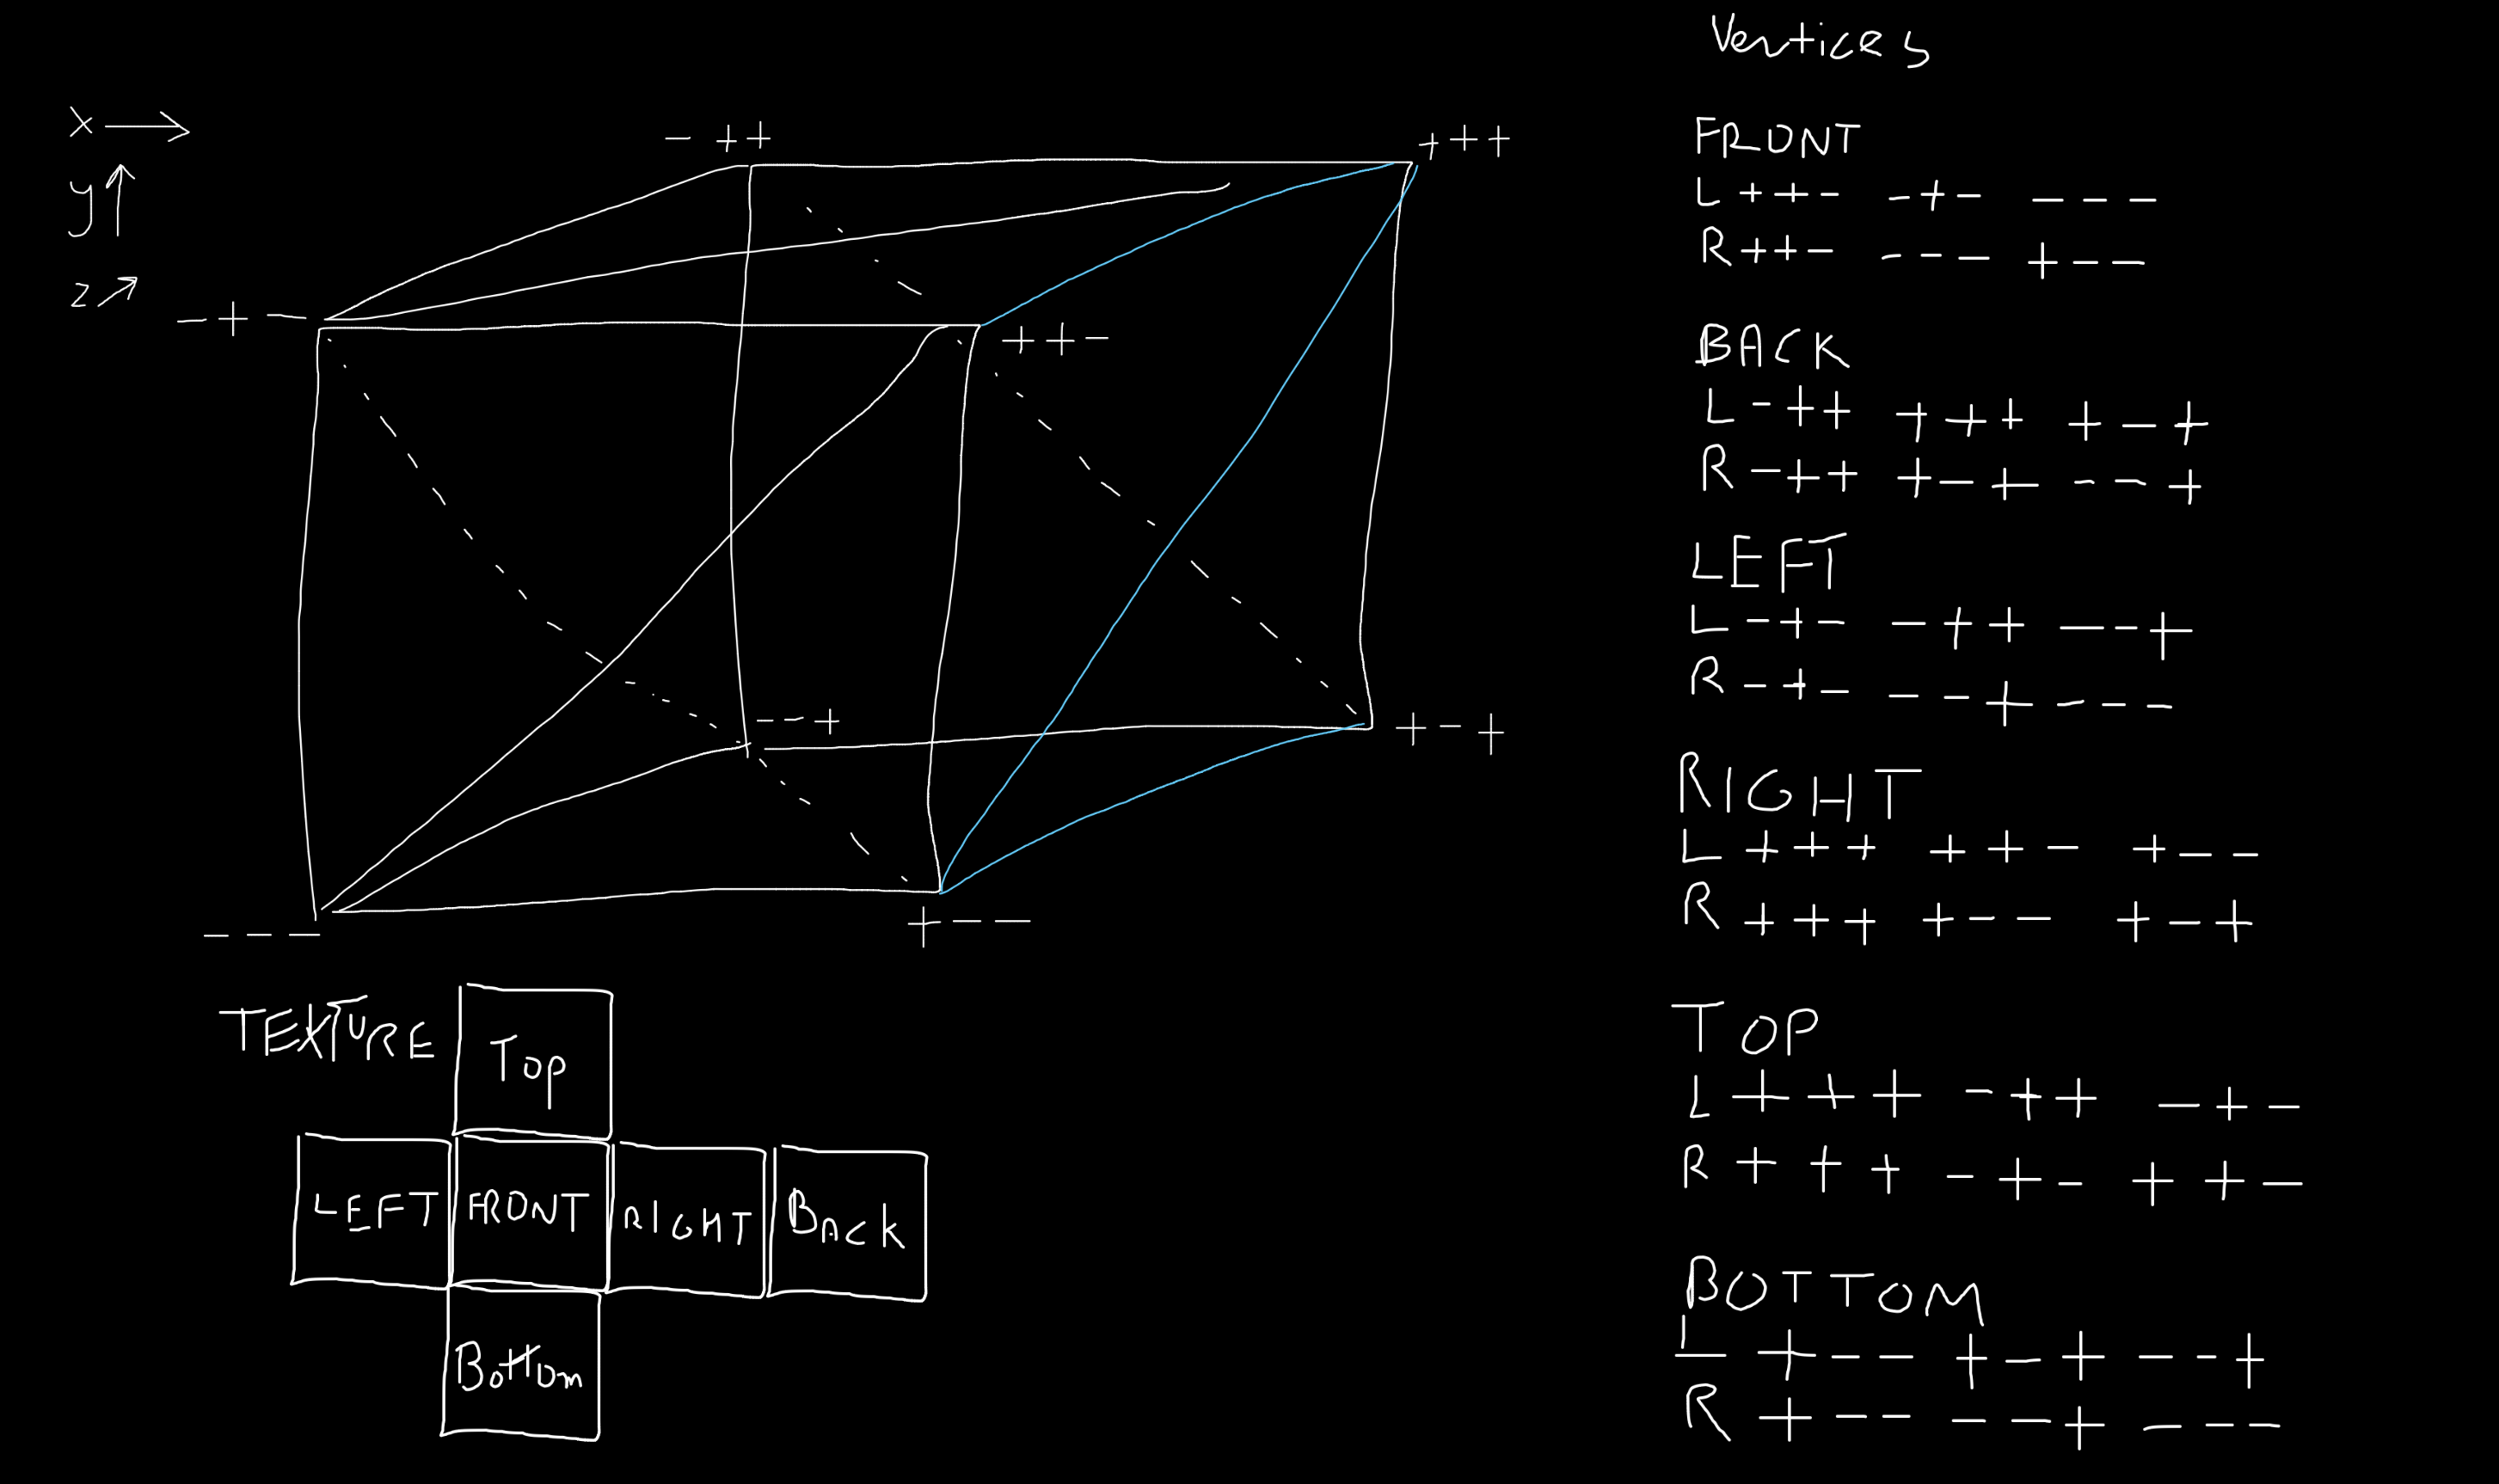 X →
y ↑
z ↗
- + +
+ + +
- + -
+ + -
- - +
+ - +
- - -
+ - -
TEXTURE
Top
LEFT FRONT RIGHT BACK
Bottom
Vertices
FRONT
L + + - - + - - - -
R + + - - - - + - -
BACK
L - + + + + + + - +
R - + + + - + - - +
LEFT
L - + - - + + - - +
R - + - - - + - - -
RIGHT
L + + + + + - + - -
R + + + + - - + - +
TOP
L + + + - + + - + -
R + + + - + - + + -
BOTTOM
L + - - + - + - - +
R + - - - - + - - -